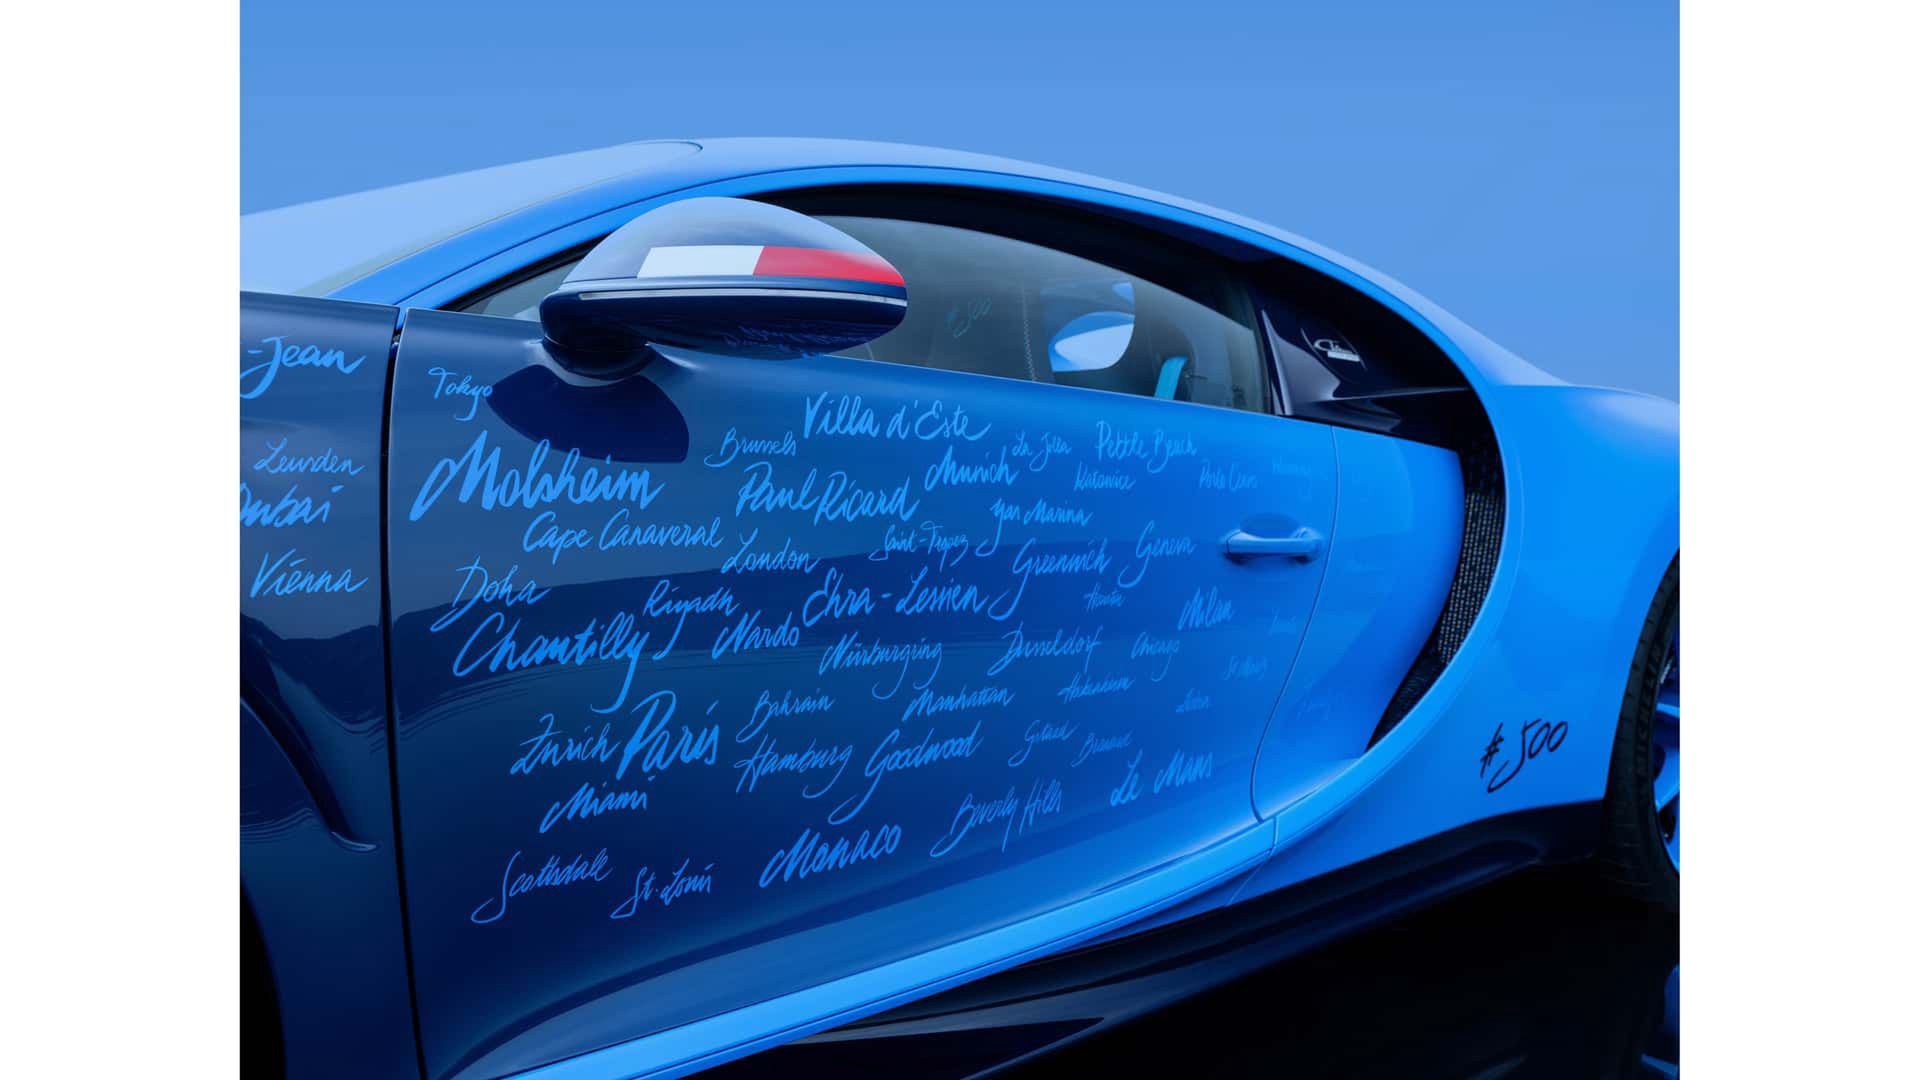 -Jean
Tokyo
Villa d'Este
Brussels
La Jolla
Pebble Beach
Leuvden
Molsheim
Munich
Katowice
Porto Cervo
Dubai
Paul Ricard
Yas Marina
Cape Canaveral
London
Saint-Tropez
Greenwich
Geneva
Vienna
Doha
Riyadh
Ehra-Lessien
Houston
Milan
Chantilly
Nardo
Nürburgring
Dusseldorf
Chicago
Bahrain
Manhattan
Zurich
Paris
Hamburg
Goodwood
Gstaad
#500
Miami
Beverly Hills
Le Mans
Scottsdale
St. Louis
Monaco